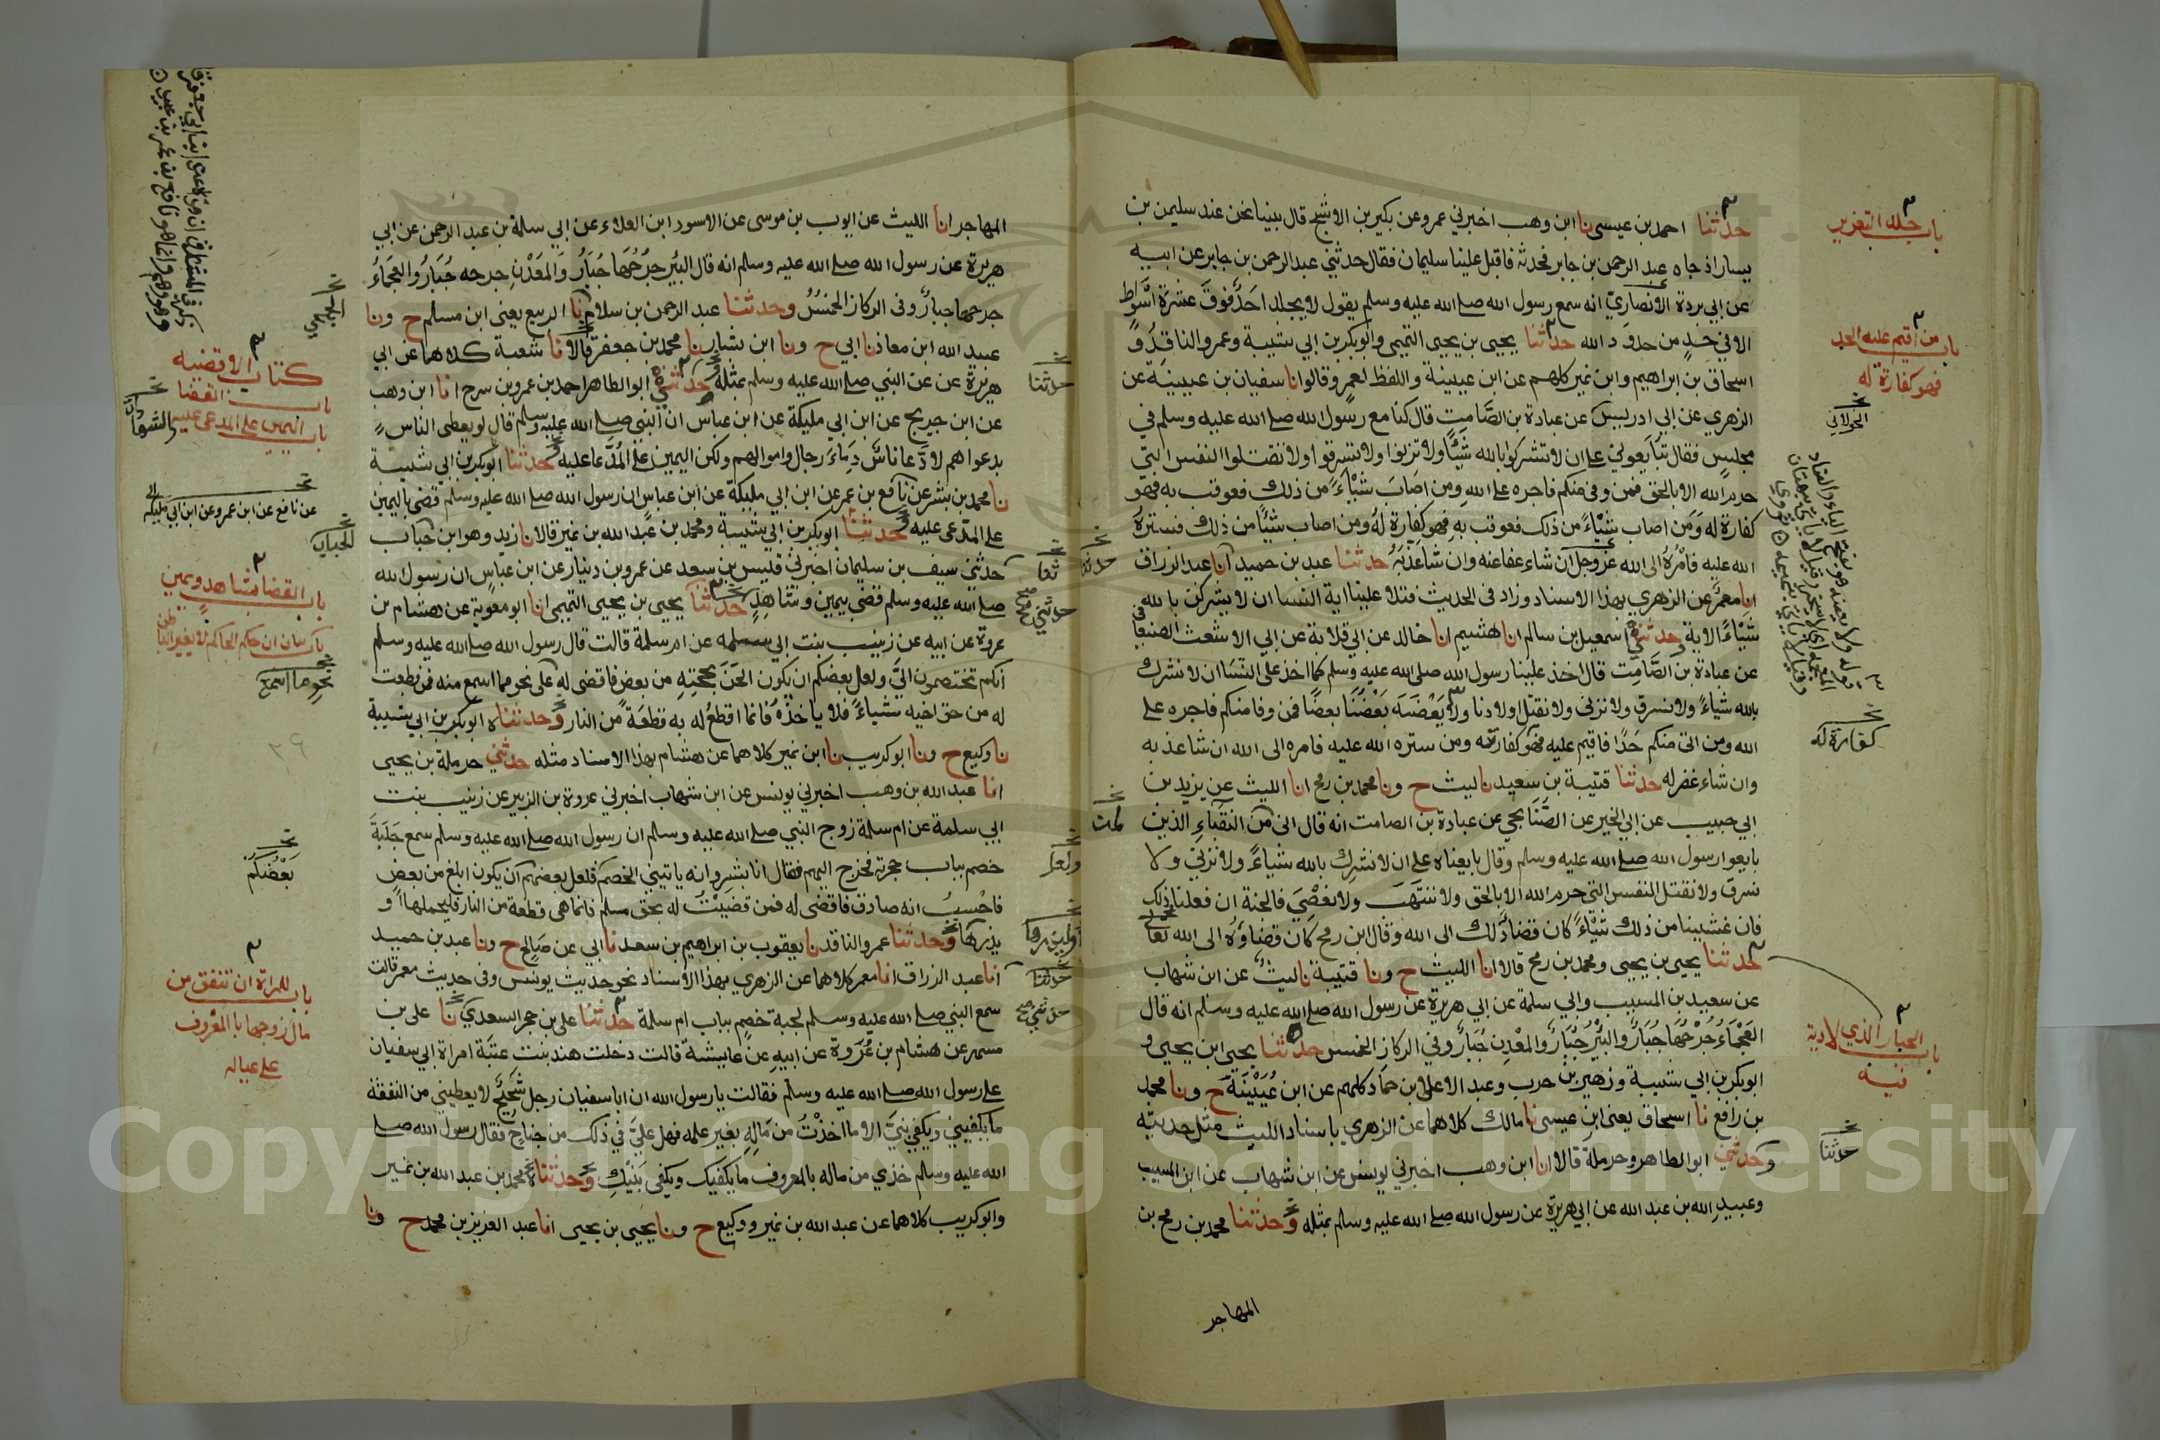 حدثنا احمد بن عيسى نا ابن وهب اخبرني عمرو عن بكير بن الاشج قال بينا نحن عند سليمن بن
يسار اذ جاه عبد الرحمن بن جابر فحدثه فاقبل علينا سليمان فقال حدثني عبد الرحمن بن جابر عن ابيه
عن ابي بردة الانصاري انه سمع رسول الله صلى الله عليه وسلم يقول لا يجلد احد فوق عشرة اسواط
الا في حد من حدود الله حدثنا يحيى بن يحيى التميمي وابو بكر بن ابي شيبة وعمرو الناقد و
اسحاق بن ابراهيم وابن نمير كلهم عن ابن عيينة واللفظ لعمرو قالوا نا سفيان بن عيينة عن
الزهري عن ابي ادريس عن عبادة بن الصامت قال كنا مع رسول الله صلى الله عليه وسلم في
مجلس فقال تبايعوني على ان لا تشركوا بالله شيئا ولا تزنوا ولا تسرقوا ولا تقتلوا النفس التي
حرم الله الا بالحق فمن وفى منكم فاجره على الله ومن اصاب شيئا من ذلك فعوقب به فهو
كفارة له ومن اصاب شيئا من ذلك فعوقب به فهو كفارة له ومن اصاب شيئا من ذلك فستره
الله عليه فامره الى الله عز وجل ان شاء عفا عنه وان شا عذبه حدثنا عبد بن حميد انا عبد الرزاق
انا معمر عن الزهري بهذا الاسناد وزاد في الحديث فتلا علينا اية النسا ان لا يشركن بالله
شيئا الاية حدثني اسمعيل بن سالم انا هشيم انا خالد عن ابي قلابة عن ابي الاشعث الصنعاني
عن عبادة بن الصامت قال اخذ علينا رسول الله صلى الله عليه وسلم كما اخذ على النسا ان لا نشرك
بالله شيئا ولا نسرق ولا نزني ولا نقتل اولادنا ولا يعضه بعضنا بعضا فمن وفا منكم فاجره على
الله ومن اتى منكم حدا فاقيم عليه فهو كفارته ومن ستره الله عليه فامره الى الله ان شا عذبه
وان شاء غفر له حدثنا قتيبة بن سعيد نا ليث ح ونا محمد بن رمح انا الليث عن يزيد بن
ابي حبيب عن ابي الخير عن الصنابحي عن عبادة بن الصامت انه قال اني من النقباء الذين
بايعوا رسول الله صلى الله عليه وسلم وقال بايعناه على ان لا نشرك بالله شيئا ولا نزني ولا
نسرق ولا نقتل النفس التي حرم الله الا بالحق ولا ننتهب ولا نعصي فالجنة ان فعلنا ذلك
فان غشينا من ذلك شيئا كان قضا ذلك الى الله وقال ابن رمح كان قضاؤه الى الله تعالى
حدثنا يحيى بن يحيى ومحمد بن رمح قالا انا الليث ح ونا قتيبة نا ليث عن ابن شهاب
عن سعيد بن المسيب وابي سلمة عن ابي هريرة عن رسول الله صلى الله عليه وسلم انه قال
العجماء جرحها جبار والبئر جبار والمعدن جبار وفي الركاز الخمس حدثنا يحيى ابن يحيى و
ابو بكر بن ابي شيبة وزهير بن حرب وعبد الاعلى بن حماد كلهم عن ابن عيينة ح ونا محمد
بن رافع نا اسحاق يعنى ابن عيسى نا مالك كلاهما عن الزهري باسناد الليث مثل حديثه
وحدثني ابو الطاهر وحرملة قالا انا ابن وهب اخبرني يونس عن ابن شهاب عن ابن المسيب
وعبيد الله بن عبد الله عن ابي هريرة عن رسول الله صلى الله عليه وسلم بمثله وحدثنا محمد بن رمح بن
المهاجر
باب جلد التعزير
باب من اقيم عليه الحد
فهو كفارة له
الخولاني
كفارة له
باب الجبار الذي لا دية
فيه
حدثنا
المهاجر انا الليث عن ايوب بن موسى عن الاسود ابن العلاء عن ابي سلمة بن عبد الرحمن عن ابي
هريرة عن رسول الله صلى الله عليه وسلم انه قال البئر جرحها جبار والمعدن جرحه جبار والعجماء
جرحها جبار وفي الركاز الخمس وحدثنا عبد الرحمن بن سلام نا الربيع يعنى ابن مسلم ح ونا
عبيد الله ابن معاذ نا ابي ح ونا ابن بشار نا محمد بن جعفر قالا نا شعبة كلاهما عن ابي
هريرة عن عن النبي صلى الله عليه وسلم بمثله حدثني ابو الطاهر احمد بن عمرو بن سرح انا ابن وهب
عن ابن جريج عن ابن ابي مليكة عن ابن عباس ان النبي صلى الله عليه وسلم قال لو يعطى الناس
بدعواهم لادعا ناس دماء رجال واموالهم ولكن اليمين على المدعا عليه وحدثنا ابو بكر بن ابي شيبة
نا محمد بن بشر عن نافع بن عمر عن ابن ابي مليكة عن ابن عباس ان رسول الله صلى الله عليه وسلم قضى باليمين
على المدعى عليه وحدثنا ابو بكر بن ابي شيبة ومحمد بن عبد الله بن نمير قالا نا زيد وهو ابن حباب
حدثني سيف بن سليمان اخبرني قيس بن سعد عن عمرو بن دينار عن ابن عباس ان رسول الله
صلى الله عليه وسلم قضى بيمين وشاهد حدثنا يحيى بن يحيى التميمي انا ابو معوية عن هشام بن
عروة عن ابيه عن زينب بنت ابي سلمه عن ام سلمة قالت قال رسول الله صلى الله عليه وسلم
انكم تختصمون الي ولعل بعضكم ان يكون الحن بحجته من بعض فاقضى له على نحو مما اسمع منه فمن قطعت
له من حق اخيه شيئا فلا ياخذه فانما اقطع له به قطعة من النار وحدثناه ابو بكر بن ابي شيبة
نا وكيع ح ونا ابو كريب نا ابن نمير كلاهما عن هشام بهذا الاسناد مثله حدثني حرملة بن يحيى
انا عبد الله بن وهب اخبرني يونس عن ابن شهاب اخبرني عروة بن الزبير عن زينب بنت
ابي سلمة عن ام سلمة زوج النبي صلى الله عليه وسلم ان رسول الله صلى الله عليه وسلم سمع جلبة
خصم بباب حجرته فخرج اليهم فقال انا بشر وانه ياتيني الخصم فلعل بعضهم ان يكون ابلغ من بعض
فاحسب انه صادق فاقضى له فمن قضيت له بحق مسلم فانما هى قطعة من النار فليحملها او
يذرها وحدثنا عمرو الناقد نا يعقوب بن ابراهيم بن سعد نا ابي عن صالح ح ونا عبد بن حميد
انا عبد الرزاق انا معمر كلاهما عن الزهري بهذا الاسناد نحو حديث يونس وفي حديث معمر قالت
سمع النبي صلى الله عليه وسلم لجبة خصم بباب ام سلمة حدثنا علي بن حجر السعدي نا علي بن
مسهر عن هشام بن عروة عن ابيه عن عايشة قالت دخلت هند بنت عتبة امراة ابي سفيان
على رسول الله صلى الله عليه وسلم فقالت يا رسول الله ان ابا سفيان رجل شحيح لا يعطيني من النفقة
ما يكفيني ويكفي بني الا ما اخذت من ماله بغير علمه فهل علي في ذلك من جناح فقال رسول الله صلى
الله عليه وسلم خذي من ماله بالمعروف ما يكفيك ويكفى بنيك وحدثناه محمد بن عبد الله بن نمير
وابو كريب كلاهما عن عبد الله بن نمير ووكيع ح ونا يحيى بن يحيى انا عبد العزيز بن محمد ح ونا
كتاب الاقضيه
باب القضا
باب اليمين على المدعى عليه
عن نافع عن ابن عمرو عن ابن ابي مليكه
الحباب
باب القضا بشاهد ويمين
باب بيان ان حكم الحاكم لا يغير الباطن
نحو ما اسمع
٣٩
بعضكم
باب للمراة ان تنفق من
مال زوجها بالمعروف
على عياله
حدثنا
Copyright © King Saud University